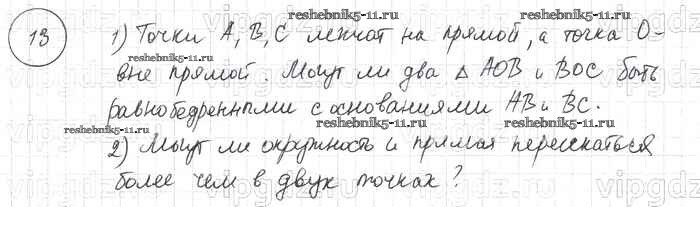 13
1) Точки A, B, C лежат на прямой, а точка O-
вне прямой. Могут ли два △ AOB и BOC быть
равнобедренными с основаниями AB и BC.
2) Могут ли окружность и прямая пересекаться
более чем в двух точках?
reshebnik5-11.ru
reshebnik5-11.ru
reshebnik5-11.ru
reshebnik5-11.ru
reshebnik5-11.ru
reshebnik5-11.ru